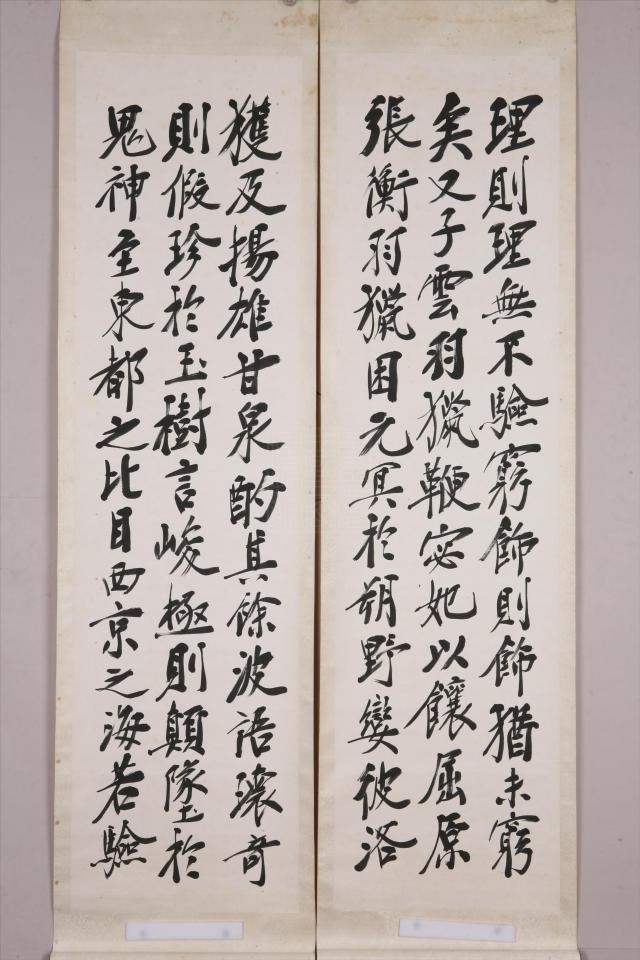 獲及揚雄甘泉酌其餘波語瓌奇
則假珍於玉樹言峻極則顛墜於
鬼神至東都之比目西京之海若驗
理則理無不驗窮飾則飾猶未窮
矣又子雲羽獵鞭宓妃以饟屈原
張衡羽獵困元冥於朔野孌彼洛